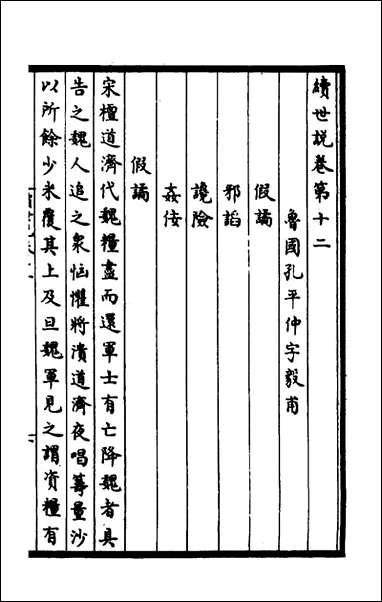 續世說卷第十二
魯國孔平仲字毅甫
假譎
邪謟
讒險
姦佞
假譎
宋檀道濟代魏糧盡而還軍士有亡降魏者具
告之魏人追之衆恟懼將潰道濟夜唱籌量沙
以所餘少米覆其上及旦魏軍見之謂資糧有